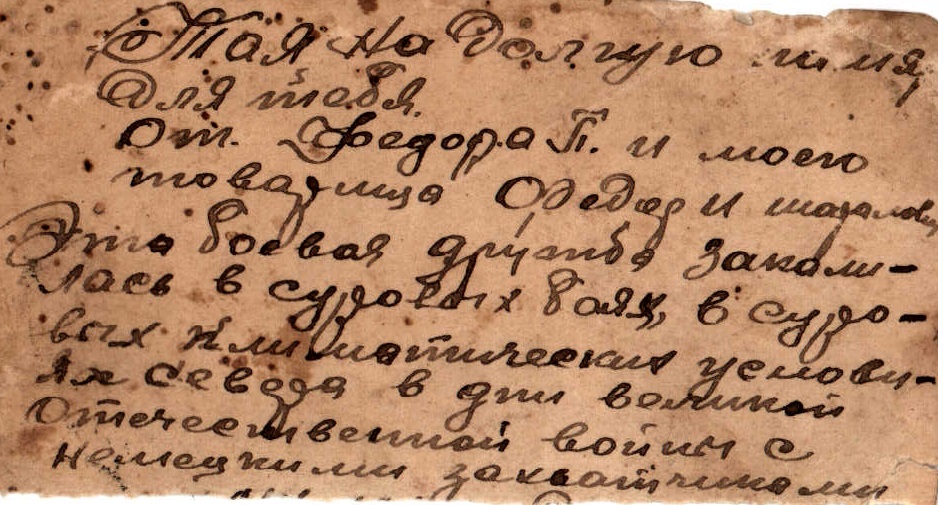 Тая на долгую
для тебя
от. Федора П. и моего
товарища Федар И
Эта боевая дружба закали-
лась в суровых боях, в суро-
вых климатических услови-
ях севера в дни великой
Отечественной войны с
немецкими захватчиками